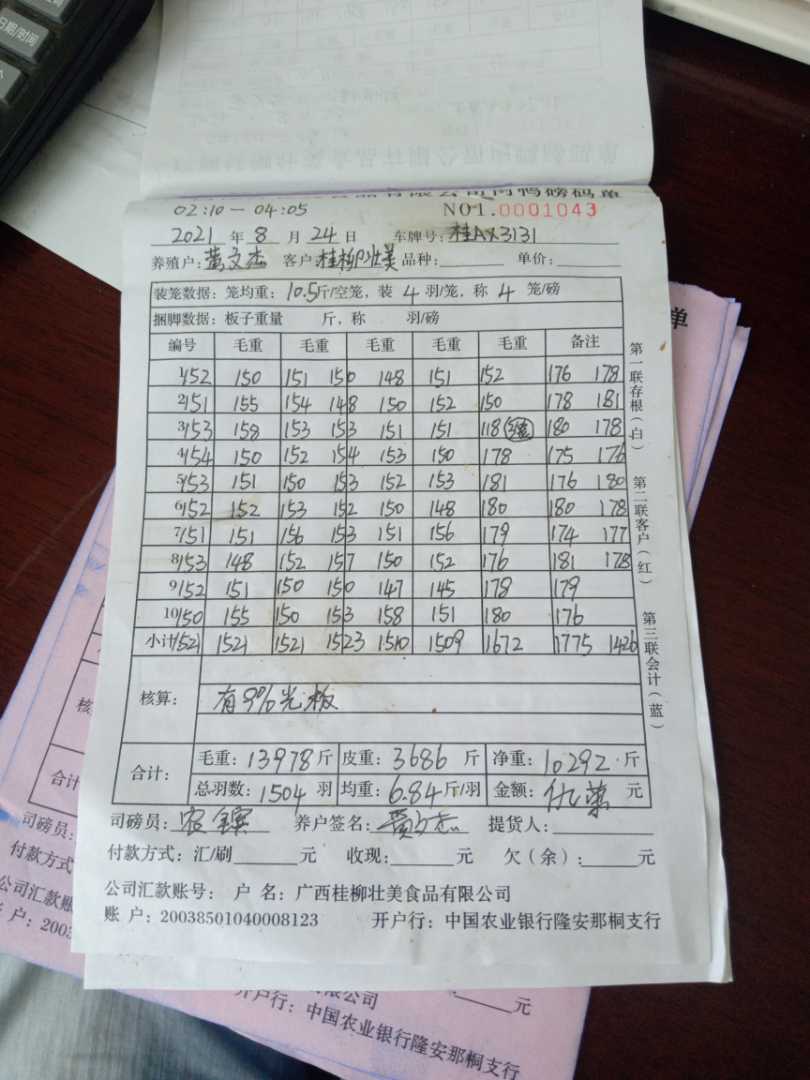 日期/时间
02:10-04:05 NO1.0001043
2021 年 8 月 24 日 车牌号: 桂AX3131
养殖户: 黄文杰 客户: 桂柳壮美 品种: 单价:
装笼数据: 笼均重: 10.5斤/空笼, 装 4 羽/笼, 称 4 笼/磅
捆脚数据: 板子重量 斤, 称 羽/磅
编号 毛重 毛重 毛重 毛重 毛重 备注
1 152 150 151 150 148 151 152 176 178
2 151 155 154 148 150 152 150 178 181
3 153 158 153 153 151 151 118 180 178
4 154 150 152 154 153 150 178 175 176
5 153 151 150 153 152 153 181 176 180
6 152 152 153 152 150 148 180 180 178
7 151 151 156 153 151 156 179 174 177
8 153 148 152 157 150 152 176 181 178
9 152 151 150 150 147 145 178 179
10 150 155 150 153 158 151 180 176
小计 1521 1521 1521 1523 1510 1509 1672 1775 1426
核算: 有9%光板
合计: 毛重: 13978 斤 皮重: 3686 斤 净重: 10292 斤
总羽数: 1504 羽 均重: 6.84 斤/羽 金额: 元
司磅员: 养户签名: 黄文杰 提货人:
付款方式: 汇/刷 元 收现: 元 欠(余): 元
公司汇款账号: 户 名: 广西桂柳壮美食品有限公司
账 户: 20038501040008123 开户行: 中国农业银行隆安那桐支行
第一联存根(白)
第二联客户(红)
第三联会计(蓝)
单
核算
合计
司磅员:
付款方式
公司汇款账
户: 2003
限公司 元
开户行: 中国农业银行隆安那桐支行